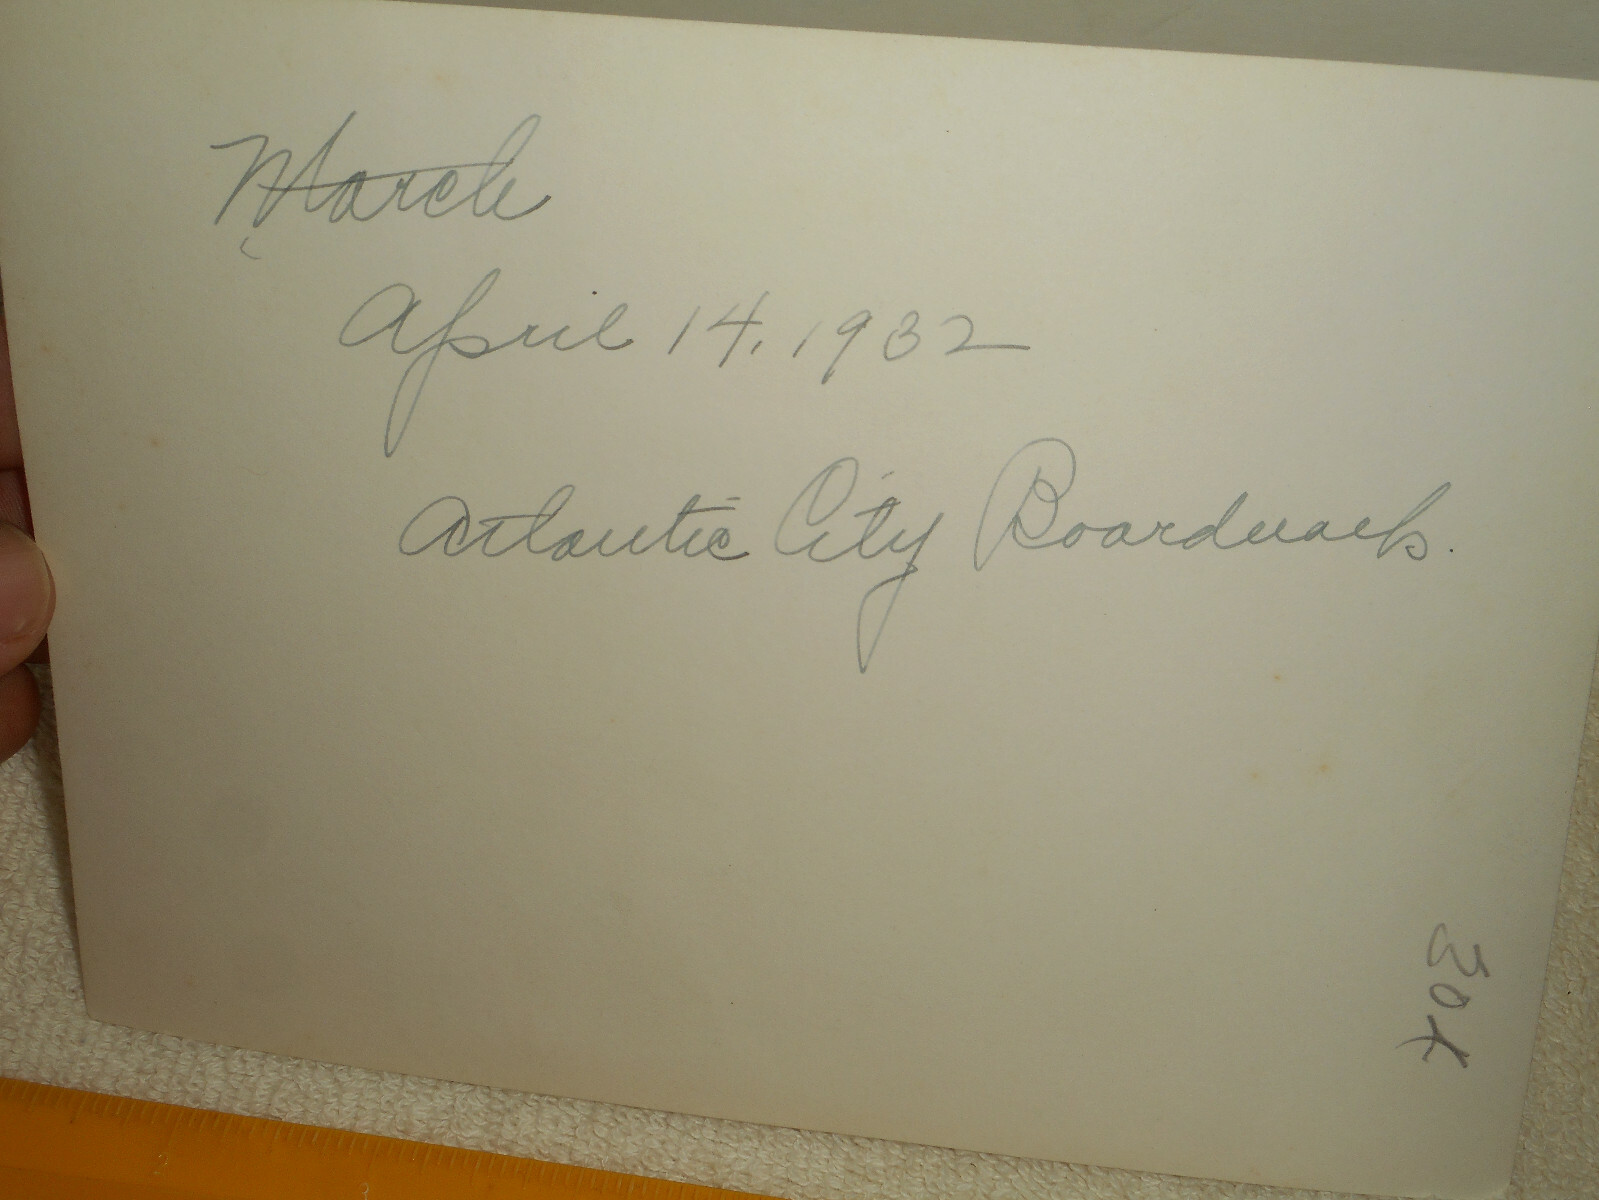 March
April 14, 1932
Atlantic City Boardwalk.
30x
2
3